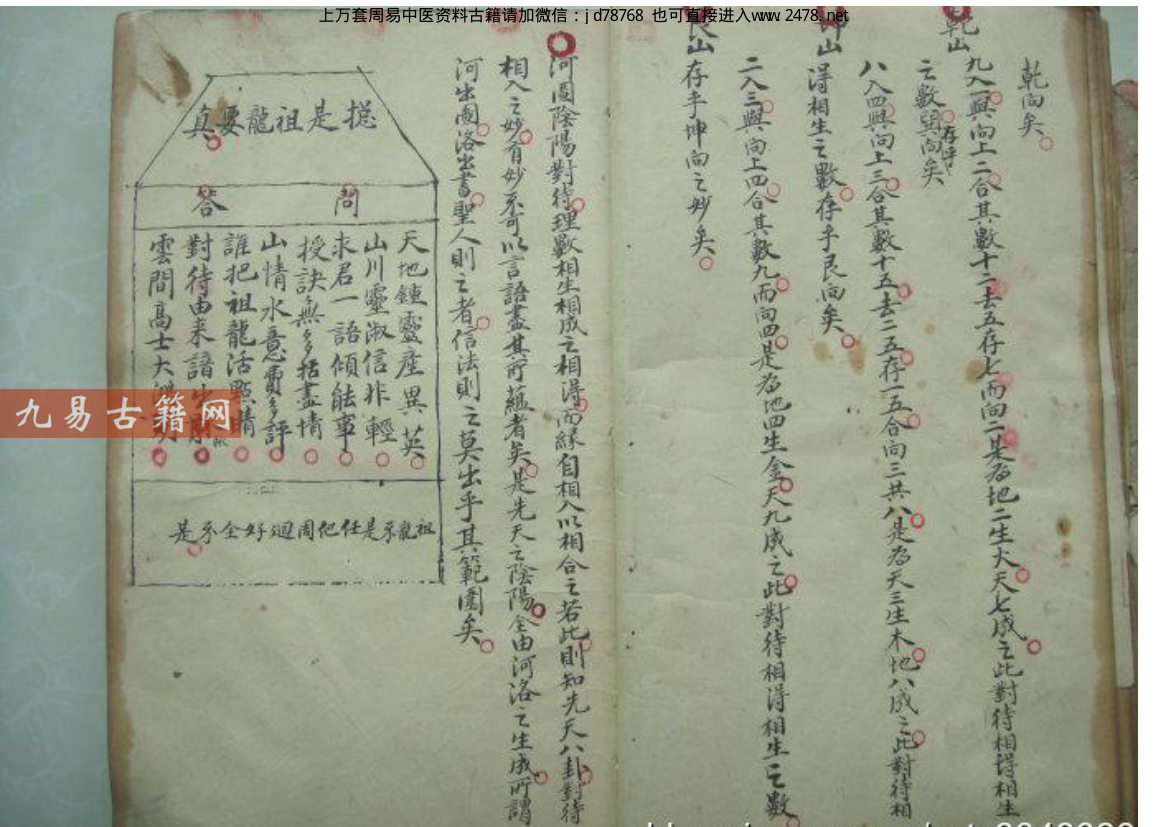 上万套周易中医资料古籍请加微信：jd78768 也可直接进入www.2478.net
乾向矣
乾山
九入一與向上二合其數十二去五存七而向二是為地二生火天七成之此對待相得相生
之數存乎巽向矣
八入四與向上三合其數十五去二五存一五合向三共八是為天三生木地八成之此對待相
得相生之數存乎艮向矣
坤山
二入三與向上四合其數九而向四是為地四生金天九成之此對待相得相生之數
艮山
存乎坤向之妙矣
河圖陰陽對待理數相生相成之相得而緣自相入以相合之若此則知先天八卦對待
相入之妙有妙不可以言語盡其所蘊者矣是先天之陰陽全由河洛之生成所謂
河出圖洛出書聖人則之者信法則之莫出乎其範圍矣
總是祖龍要真
問
答
天地鍾靈產異英
山川靈淑信非輕
求君一語傾能軍
授訣無多括盡情
山情水意費多評
誰把祖龍活點睛
對待由来語
雲間高士大
祖龍不是任他周迴好全不是
九易古籍网